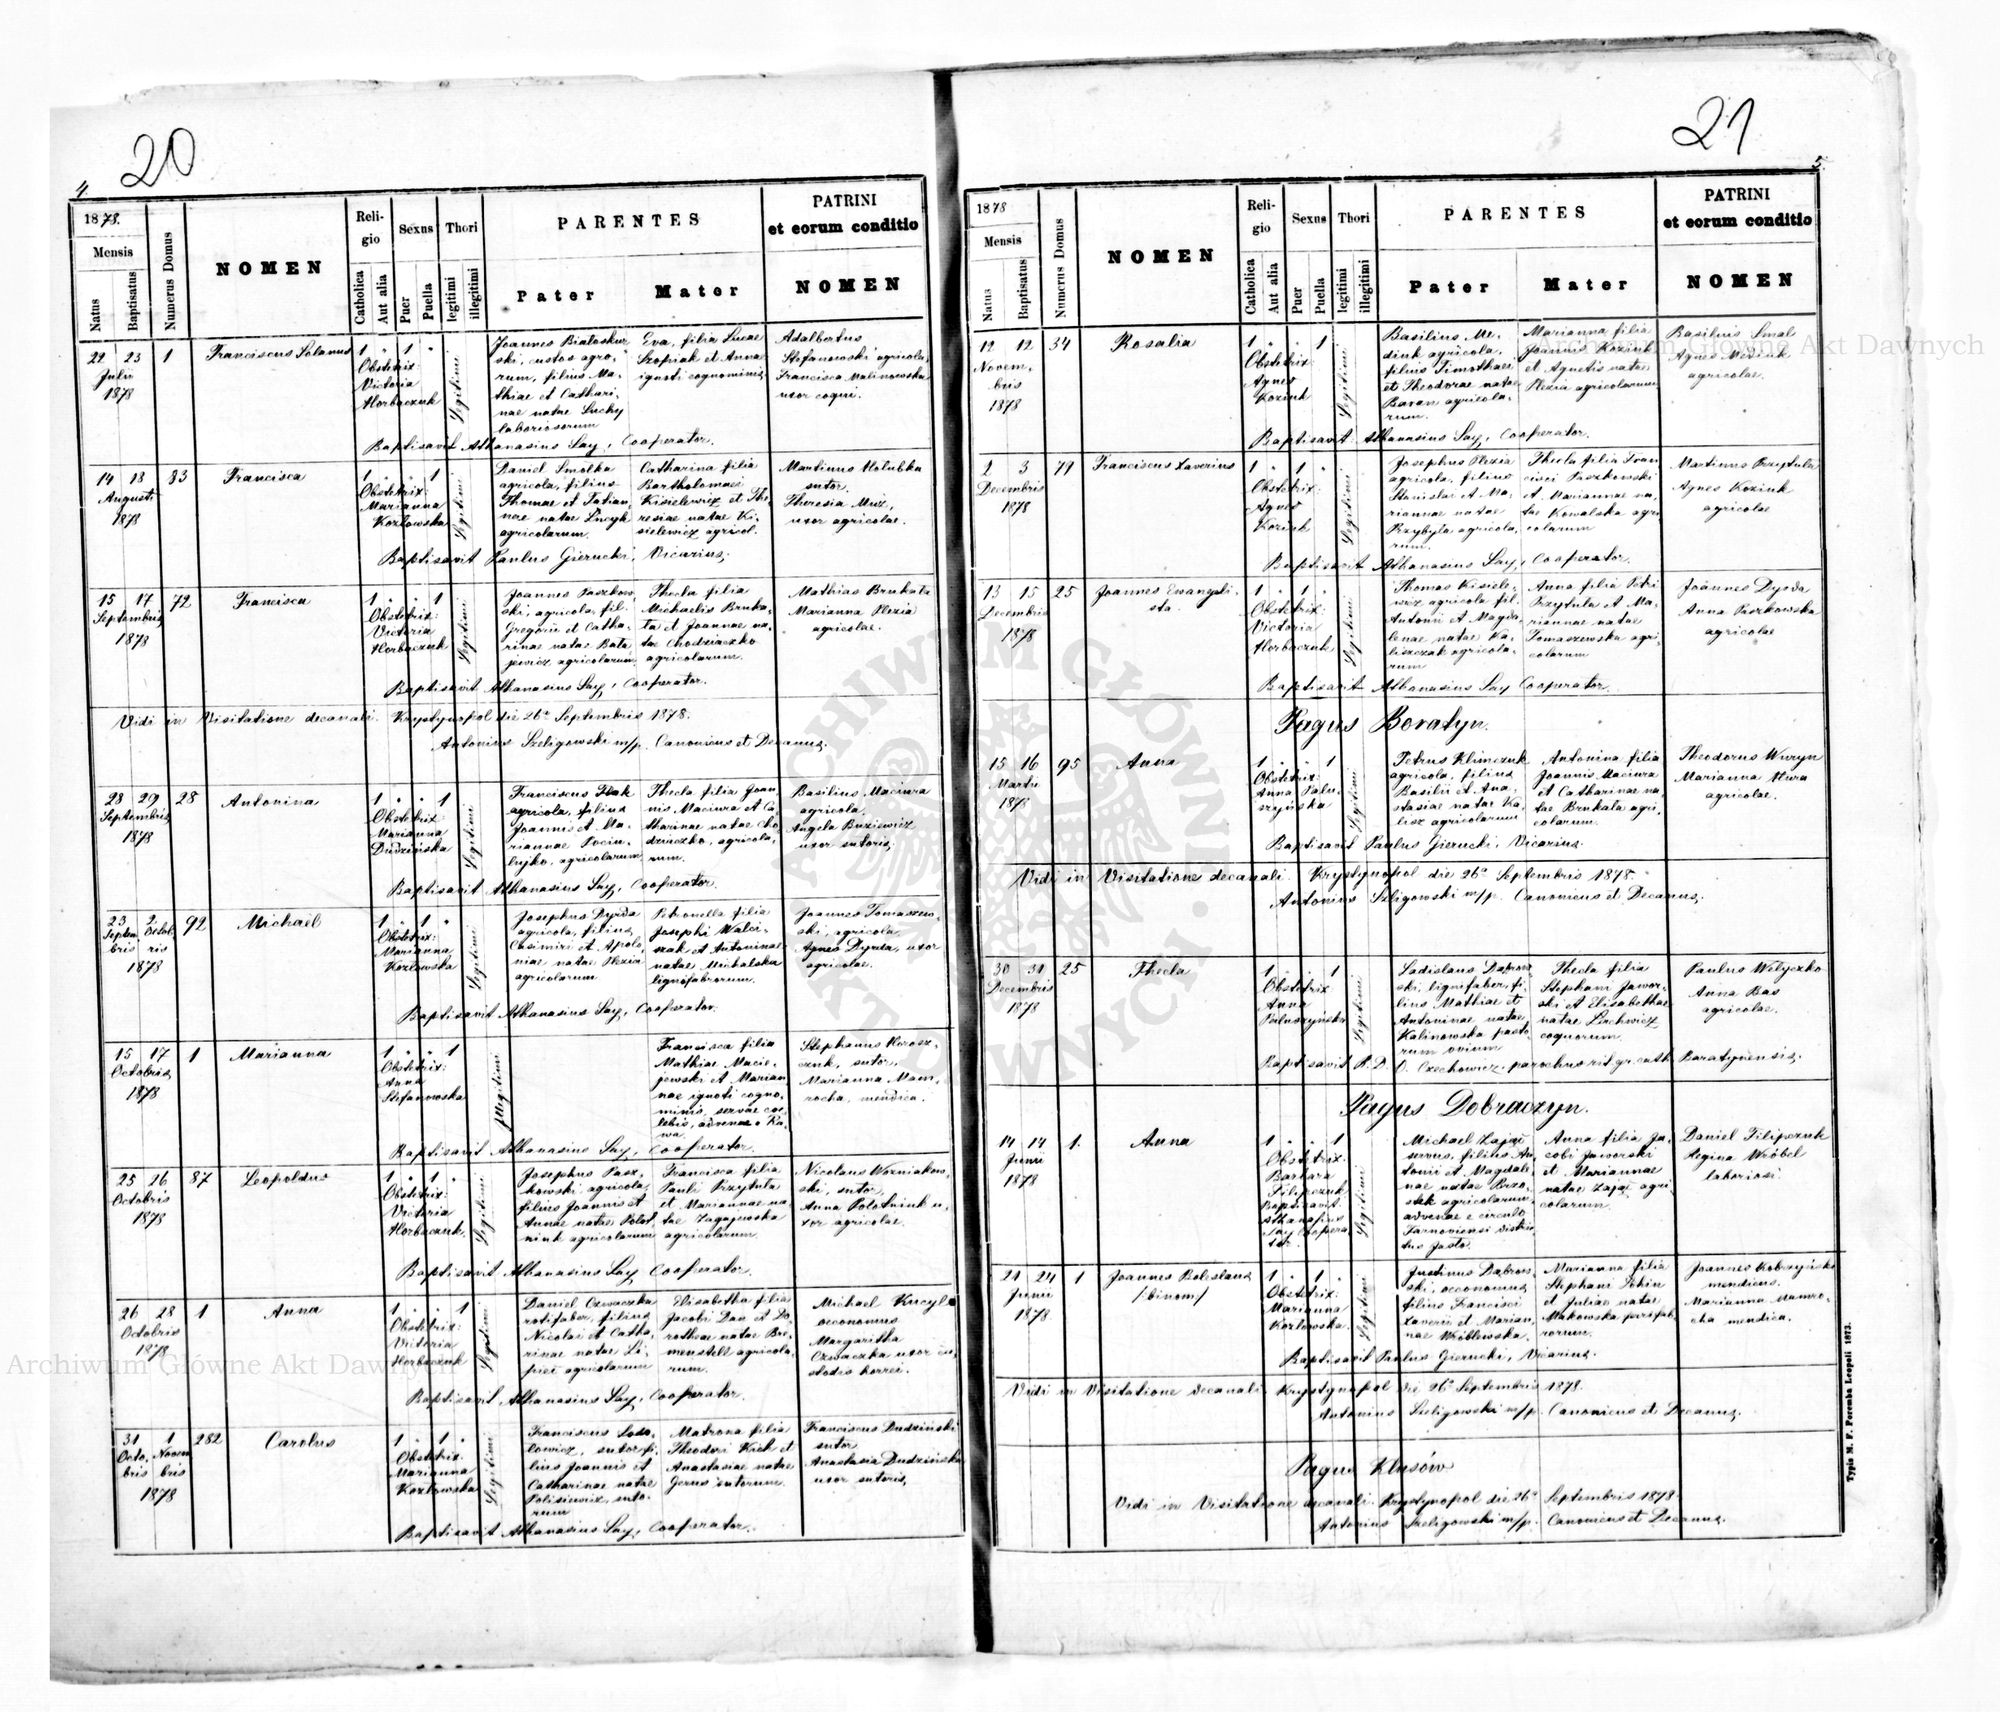 20
4.
1878.
Mensis
Natus
Baptisatus
Numerus Domus
NOMEN
Reli-
gio
Catholica
Aut alia
Sexus
Puer
Puella
Thori
legitimi
illegitimi
PARENTES
Pater
Mater
PATRINI
et eorum conditio
NOMEN
22 23 1 Franciscus Solanus
Julii
1878
1 " 1 "
Obstetrix:
Victoria
Horbaczuk
Legitimi
Joannes Białoskur-
ski, custos agro-
rum, filius Ma-
thiae et Cathari-
nae natae Suchy
laboriosorum
Eva, filia Lucae
Szopiak et Anna
ignoti cognominis
Adalbertus
Stefanowski agricola
Francisca Malinowska
uxor coqui.
Baptisavit Athanasius Say, Cooperator.
14 18 83 Francisca
Augusti
1878
1 " " 1
Obstetrix:
Marianna
Kozłowska
Legitimi
Daniel Smolka
agricola, filius
Thomae et Tatian-
nae natae
agricolarum.
Catharina filia
Bartholomaei
Kisielewicz et The-
resiae natae Ki-
sielewicz agricol.
Martinus Holubka
sutor.
Theresia
uxor agricolae.
Baptisavit Paulus Gierucki, Vicarius.
15 17 72 Francisca
Septembris
1878
1 " " 1
Obstetrix:
Victoria
Horbaczuk
Legitimi
Joannes Paszkow-
ski, agricola, fil-
Gregorii et Catha-
rinae natae Bata-
jewicz, agricolarum
Thecla filia
Michaelis Bruka-
ta et Joannae na-
tae Chodziaczko
agricolarum.
Mathias Brukata
Marianna Plezia
agricolae.
Baptisavit Athanasius Say, Cooperator.
Vidi in Visitatione decanali. Krystynopol die 26a Septembris 1878.
Antonius Szeligowski m/p. Canonicus et Decanus.
28 29 28 Antonina
Septembris
1878
1 " " 1
Obstetrix:
Marianna
Dudzińska
Legitimi
Franciscus
agricola, filius
Joannis et Ma-
riannae Pociu-
lujko, agricolarum
Thecla filia Joan-
nis Maciura et Ca-
tharinae natae Cho-
dziaczko, agricola-
rum.
Basilius Maciura
agricola,
Angela Buziewicz
uxor sutoris.
Baptisavit Athanasius Say, Cooperator.
23 2 92 Michaël
Septem- Octob-
bris ris
1878
1 " 1 "
Obstetrix:
Marianna
Kozłowska
Legitimi
Josephus Dyrda
agricola, filius
Casimiri et Apolo-
niae natae Plezia
agricolarum
Petronella filia
Josephi Walci-
szak et Antoninae
natae Michalska
lignifabrorum.
Joannes Tomaszew-
ski, agricola,
Agnes Dyrda, uxor
agricolae.
Baptisavit Athanasius Say, Cooperator.
15 17 1 Marianna
Octobris
1878
1 " " 1
Obstetrix:
Anna
Stefanowska
Illegitimi
Francisca filia
Mathiae Macie-
jewski et Marian-
nae ignoti cogno-
minis, servae coe-
lebis, advenae e Ra-
wa.
Stephanus Korosz-
czuk, sutor,
Marianna Mam-
rocha, mendica.
Baptisavit Athanasius Say, Cooperator.
25 26 87 Leopoldus
Octobris
1878
1 " 1 "
Obstetrix:
Victoria
Horbaczuk
Legitimi
Josephus Pasz-
kowski agricola,
filius Joannis et
Annae natae Polot-
niuk agricolarum
Francisca filia
Pauli Przytuła
et Mariannae na-
tae Zagajewska
agricolarum
Nicolaus Wozniakow-
ski, sutor,
Anna Polotniuk u-
xor agricolae.
Baptisavit Athanasius Say Cooperator.
26 28 1 Anna
Octobris
1878
1 " " 1
Obstetrix:
Victoria
Horbaczuk
Legitimi
Daniel Czwaczka
rotifaber, filius
Nicolai et Catha-
rinae natae Li-
piec agricolarum
Elisabetha filia
Jacobi Dau et Do-
rotheae natae Bre-
menstell agricola-
rum.
Michael Kucyl
oeconomus
Margaritha
Czwaczka uxor cu-
stodis horrei.
Baptisavit Athanasius Say, Cooperator.
31 1 282 Carolus
Octo- Novem
bris bris
1878
1 " 1 "
Obstetrix:
Marianna
Kozłowska
Legitimi
Franciscus
lowicz, sutor fi-
lius Joannis et
Catharinae natae
Polisiewicz, suto-
rum
Matrona filia
Theodori Kich et
Anastasiae natae
Gerus sutorum.
Franciscus Dudziński
sutor
Anastasia Dudzińska
uxor sutoris.
Baptisavit Athanasius Say, Cooperator.
21
5.
1878
Mensis
Natus
Baptisatus
Numerus Domus
NOMEN
Reli-
gio
Catholica
Aut alia
Sexus
Puer
Puella
Thori
legitimi
illegitimi
PARENTES
Pater
Mater
PATRINI
et eorum conditio
NOMEN
12 12 34 Rosalia
Novem-
bris
1878
1 " " 1
Obstetrix:
Agnes
Koziuk
Legitimi
Basilius Me-
diuk agricola,
filius Timothaei
et Theodorae natae
Baran agricola-
rum.
Marianna filia
Joannis Koziuk
et Agnetis natae
Plezia agricolarum
Basilius Smal
Agnes Mediuk
agricolae.
Baptisavit Athanasius Say, Cooperator.
2 3 79 Franciscus Xaverius
Decembris
1878
1 " 1 "
Obstetrix:
Agnes
Koziuk
Legitimi
Josephus Plezia
agricola, filius
Stanislai et Ma-
riannae natae
Przybyła agricola-
rum.
Thecla filia Fran-
cisci Paszkowski
et Mariannae na-
tae Kowalska agri-
colarum
Martinus Przytuła
Agnes Koziuk
agricolae
Baptisavit Athanasius Say, Cooperator.
13 15 25 Joannes Evangeli-
sta.
Decembris
1878
1 " 1 "
Obstetrix:
Victoria
Horbaczuk
Legitimi
Thomas Kisiele-
wicz agricola fil.
Antonii et Magda-
lenae natae Ka-
liszczak agricola-
rum
Anna filia Petri
Przytuła et Ma-
riannae natae
Tomaszewska agri-
colarum
Joannes Dyrda
Anna Paszkowska
agricolae
Baptisavit Athanasius Say Cooperator.
Pagus Boratyn.
15 16 95 Anna
Martii
1878
1 " " 1
Obstetrix:
Anna Palu-
szyńska
Legitimi
Petrus Klimczuk
agricola, filius
Basilii et Ana-
stasiae natae Ka-
lisz agricolarum
Antonina filia
Joannis Maciura
et Catharinae na-
tae Brukala agri-
colarum.
Theodorus Wuryn
Marianna Mura
agricolae.
Baptisavit Paulus Gierucki, Vicarius.
Vidi in Visitatione decanali. Krystynopol die 26a Septembris 1878.
Antonius Szeligowski m/p. Canonicus et Decanus.
30 31 25 Thecla
Decembris
1878
1 " " 1
Obstetrix
Anna
Paluszyńska
Legitimi
Ladislaus Dabrow-
ski, lignifaber, fi-
lius Mathiae et
Antoninae natae
Kalinowska pasto-
rum ovium
Thecla filia
Stephani Jawor-
ski et Elisabethae
natae Lachwicz
coquorum.
Paulus Welyczko
Anna Bas
agricolae.
Baptisavit R. D. D. Czechowicz parochus rit. gr. cath. Baratynensis.
Pagus Dobraczyn.
14 14 1. Anna
Junii
1878
1 " " 1
Obstetrix:
Barbara
Filipczuk
Baptisavit
Athanasius
Say Coopera-
tor.
Legitimi
Michael Zając
servus, filius An-
tonii et Magdale-
nae natae Brzo-
stek agricolarum
advenae e circulo
Tarnoviensi distric-
tus Jasło.
Anna filia Ja-
cobi Jaworski
et Mariannae
natae Zając agri-
colarum.
Daniel Filipczuk
Regina Wróbel
laboriosi.
21 24 1 Joannes Boleslaus
/:binom:/
Junii
1878.
1 " 1 "
Obstetrix:
Marianna
Kozłowska.
Legitimi
Justinus Dąbrow-
ski, oeconomus
filius Francisci
Xaverii et Marian-
nae Wiblewska.
Marianna filia
Stephani
et Juliae natae
Makowska
rorum.
Joannes Kobrzyński
mendicus.
Marianna Mamro-
cha mendica.
Baptisavit Paulus Gierucki, Vicarius.
Vidi in Visitatione decanali. Krystynopol die 26a Septembris 1878.
Antonius Szeligowski m/p. Canonicus et Decanus.
Pagus Klusów
Vidi in Visitatione decanali. Krystynopol die 26a Septembris 1878.
Antonius Szeligowski m/p. Canonicus et Decanus.
Typis M. F. Poremba Leopoli 1873.
Archiwum Główne Akt Dawnych
Archiwum Główne Akt Dawnych
ARCHIWUM GŁÓWNE AKT DAWNYCH